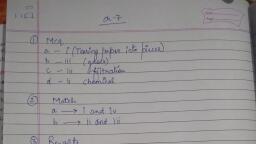 a-7
① Mcq
a - i (Tearing paper into pieces)
b - iii (gases)
c - ii filtration
d - ii chemical
② Match
a → i and iv
b → ii and iii
③